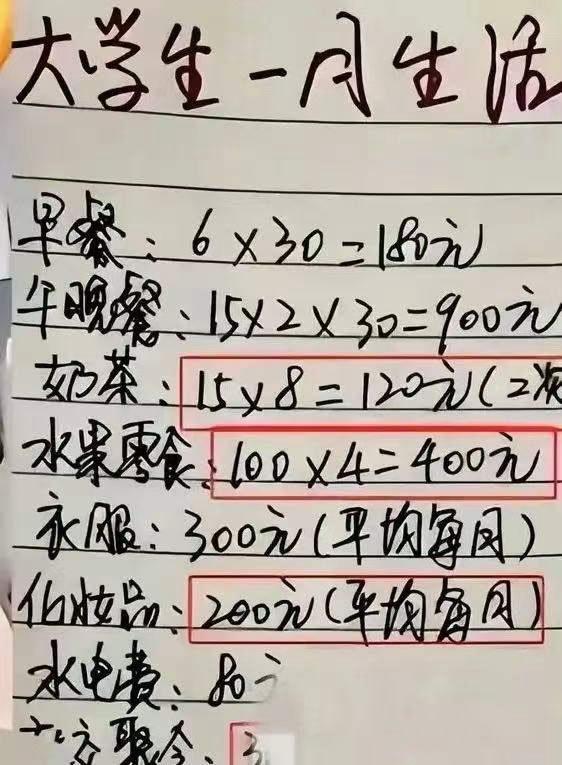 大学生一月生活
早餐：6×30=180元
午晚餐：15×2×30=900元
奶茶：15×8=120元(2次
水果零食：100×4=400元
衣服：300元(平均每月)
化妆品：200元(平均每月)
水电费：80元
社交聚会：3